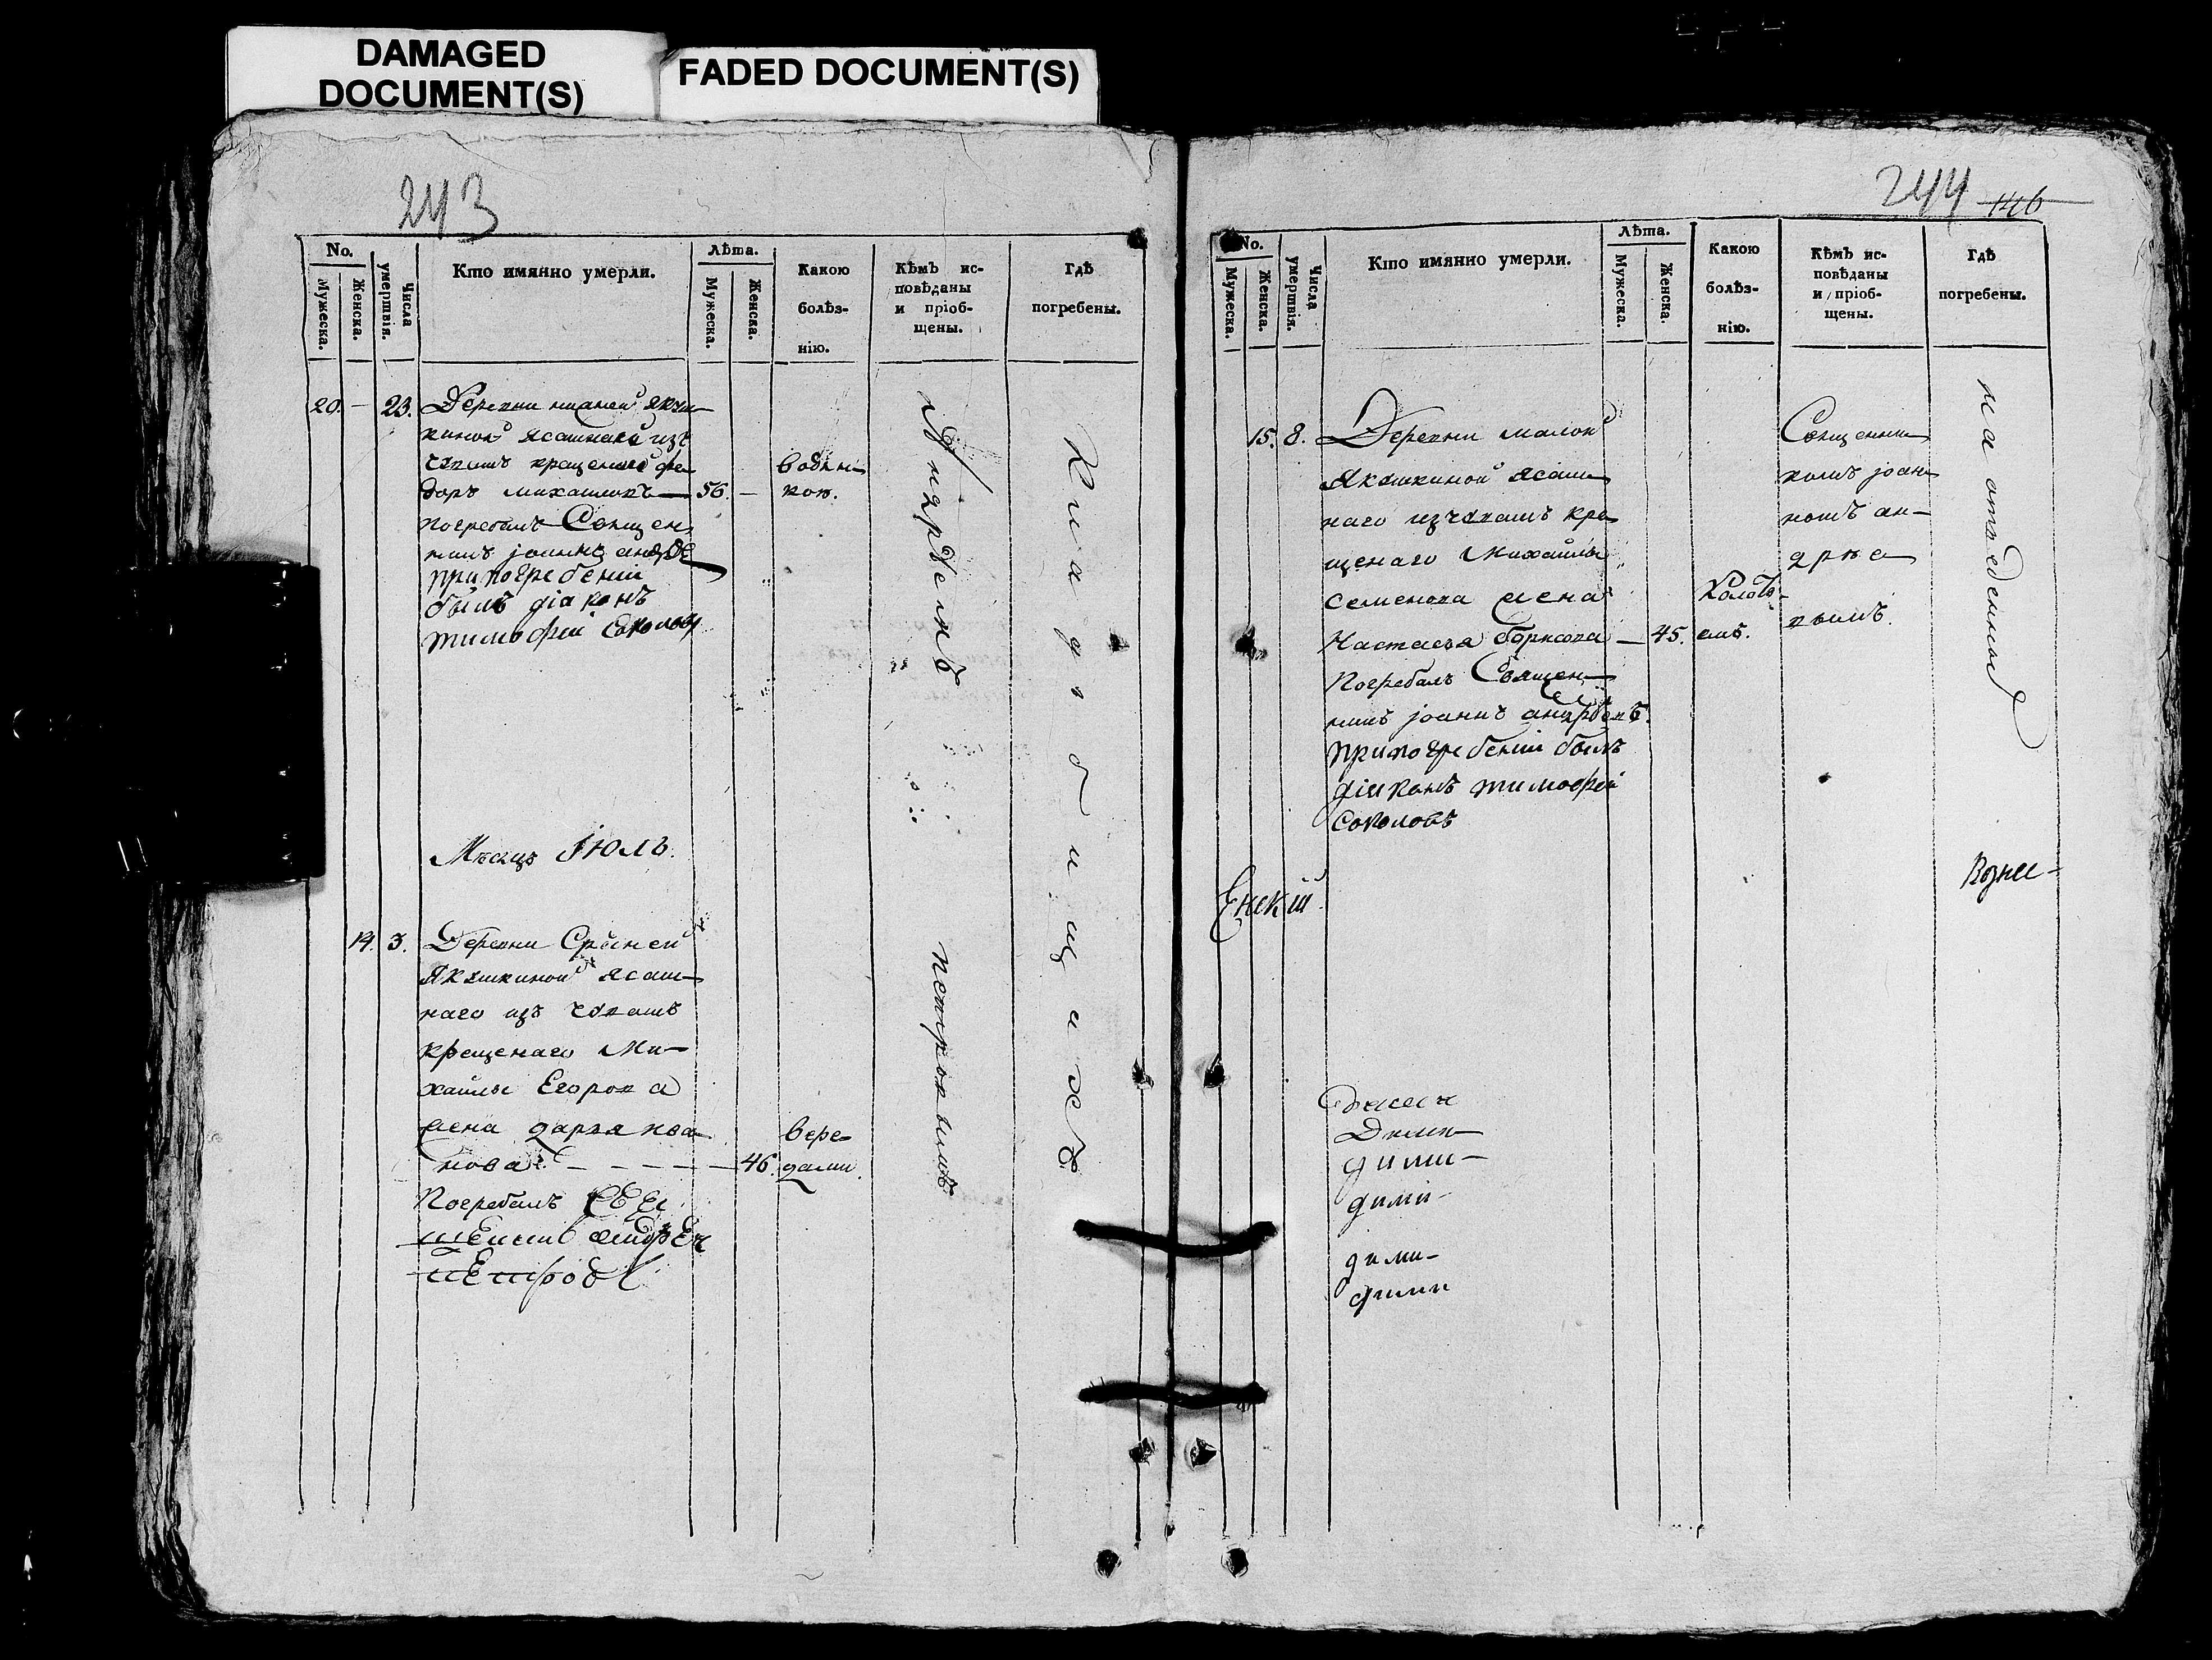 DAMAGED
DOCUMENT(S)
FADED DOCUMENT(S)
243
No.
Мужеска.
Женска.
Числа умертвія.
Кто имянно умерли.
Лѣта.
Мужеска.
Женска.
Какою
болѣз-
нію.
Кѣмъ ис-
повѣданы
и пріоб-
щены.
Гдѣ
погребены.
20. — 23. Деревни
ясашнаго изъ
чувашъ крещенаго фе
доръ 56. —
погребалъ Священ
никъ іоаннъ андрѣе
при погребеніи
былъ діаконъ
тимофей соколовъ
Андрѣемъ
петровымъ
на кладбищахъ
Мѣсяцъ Іюль.
14. 3. Деревни Средней
Якушкиной ясаш
наго изъ чувашъ
крещенаго Ми
хайлы Егорова
жена дарья ива
нова — — — — 46. вере-
дами.
Погребалъ
андрей
петровъ
244 146
No.
Мужеска.
Женска.
Числа умертвія.
Кто имянно умерли.
Лѣта.
Мужеска.
Женска.
Какою
болѣз-
нію.
Кѣмъ ис-
повѣданы
и пріоб-
щены.
Гдѣ
погребены.
15. 8. Деревни малой
Якушкиной ясаш
наго изъ чувашъ кре
щенаго Михайлы
семенова жена
Настасья борисова — 45.
Погребалъ Священ
никъ іоаннъ андрѣевъ
при погребеніи былъ
діаконъ тимофей
соколовъ
Священни
комъ іоан
номъ ан-
дрѣе
вымъ.
Возне-
Енскій
дими-
дими-
дими-
дими